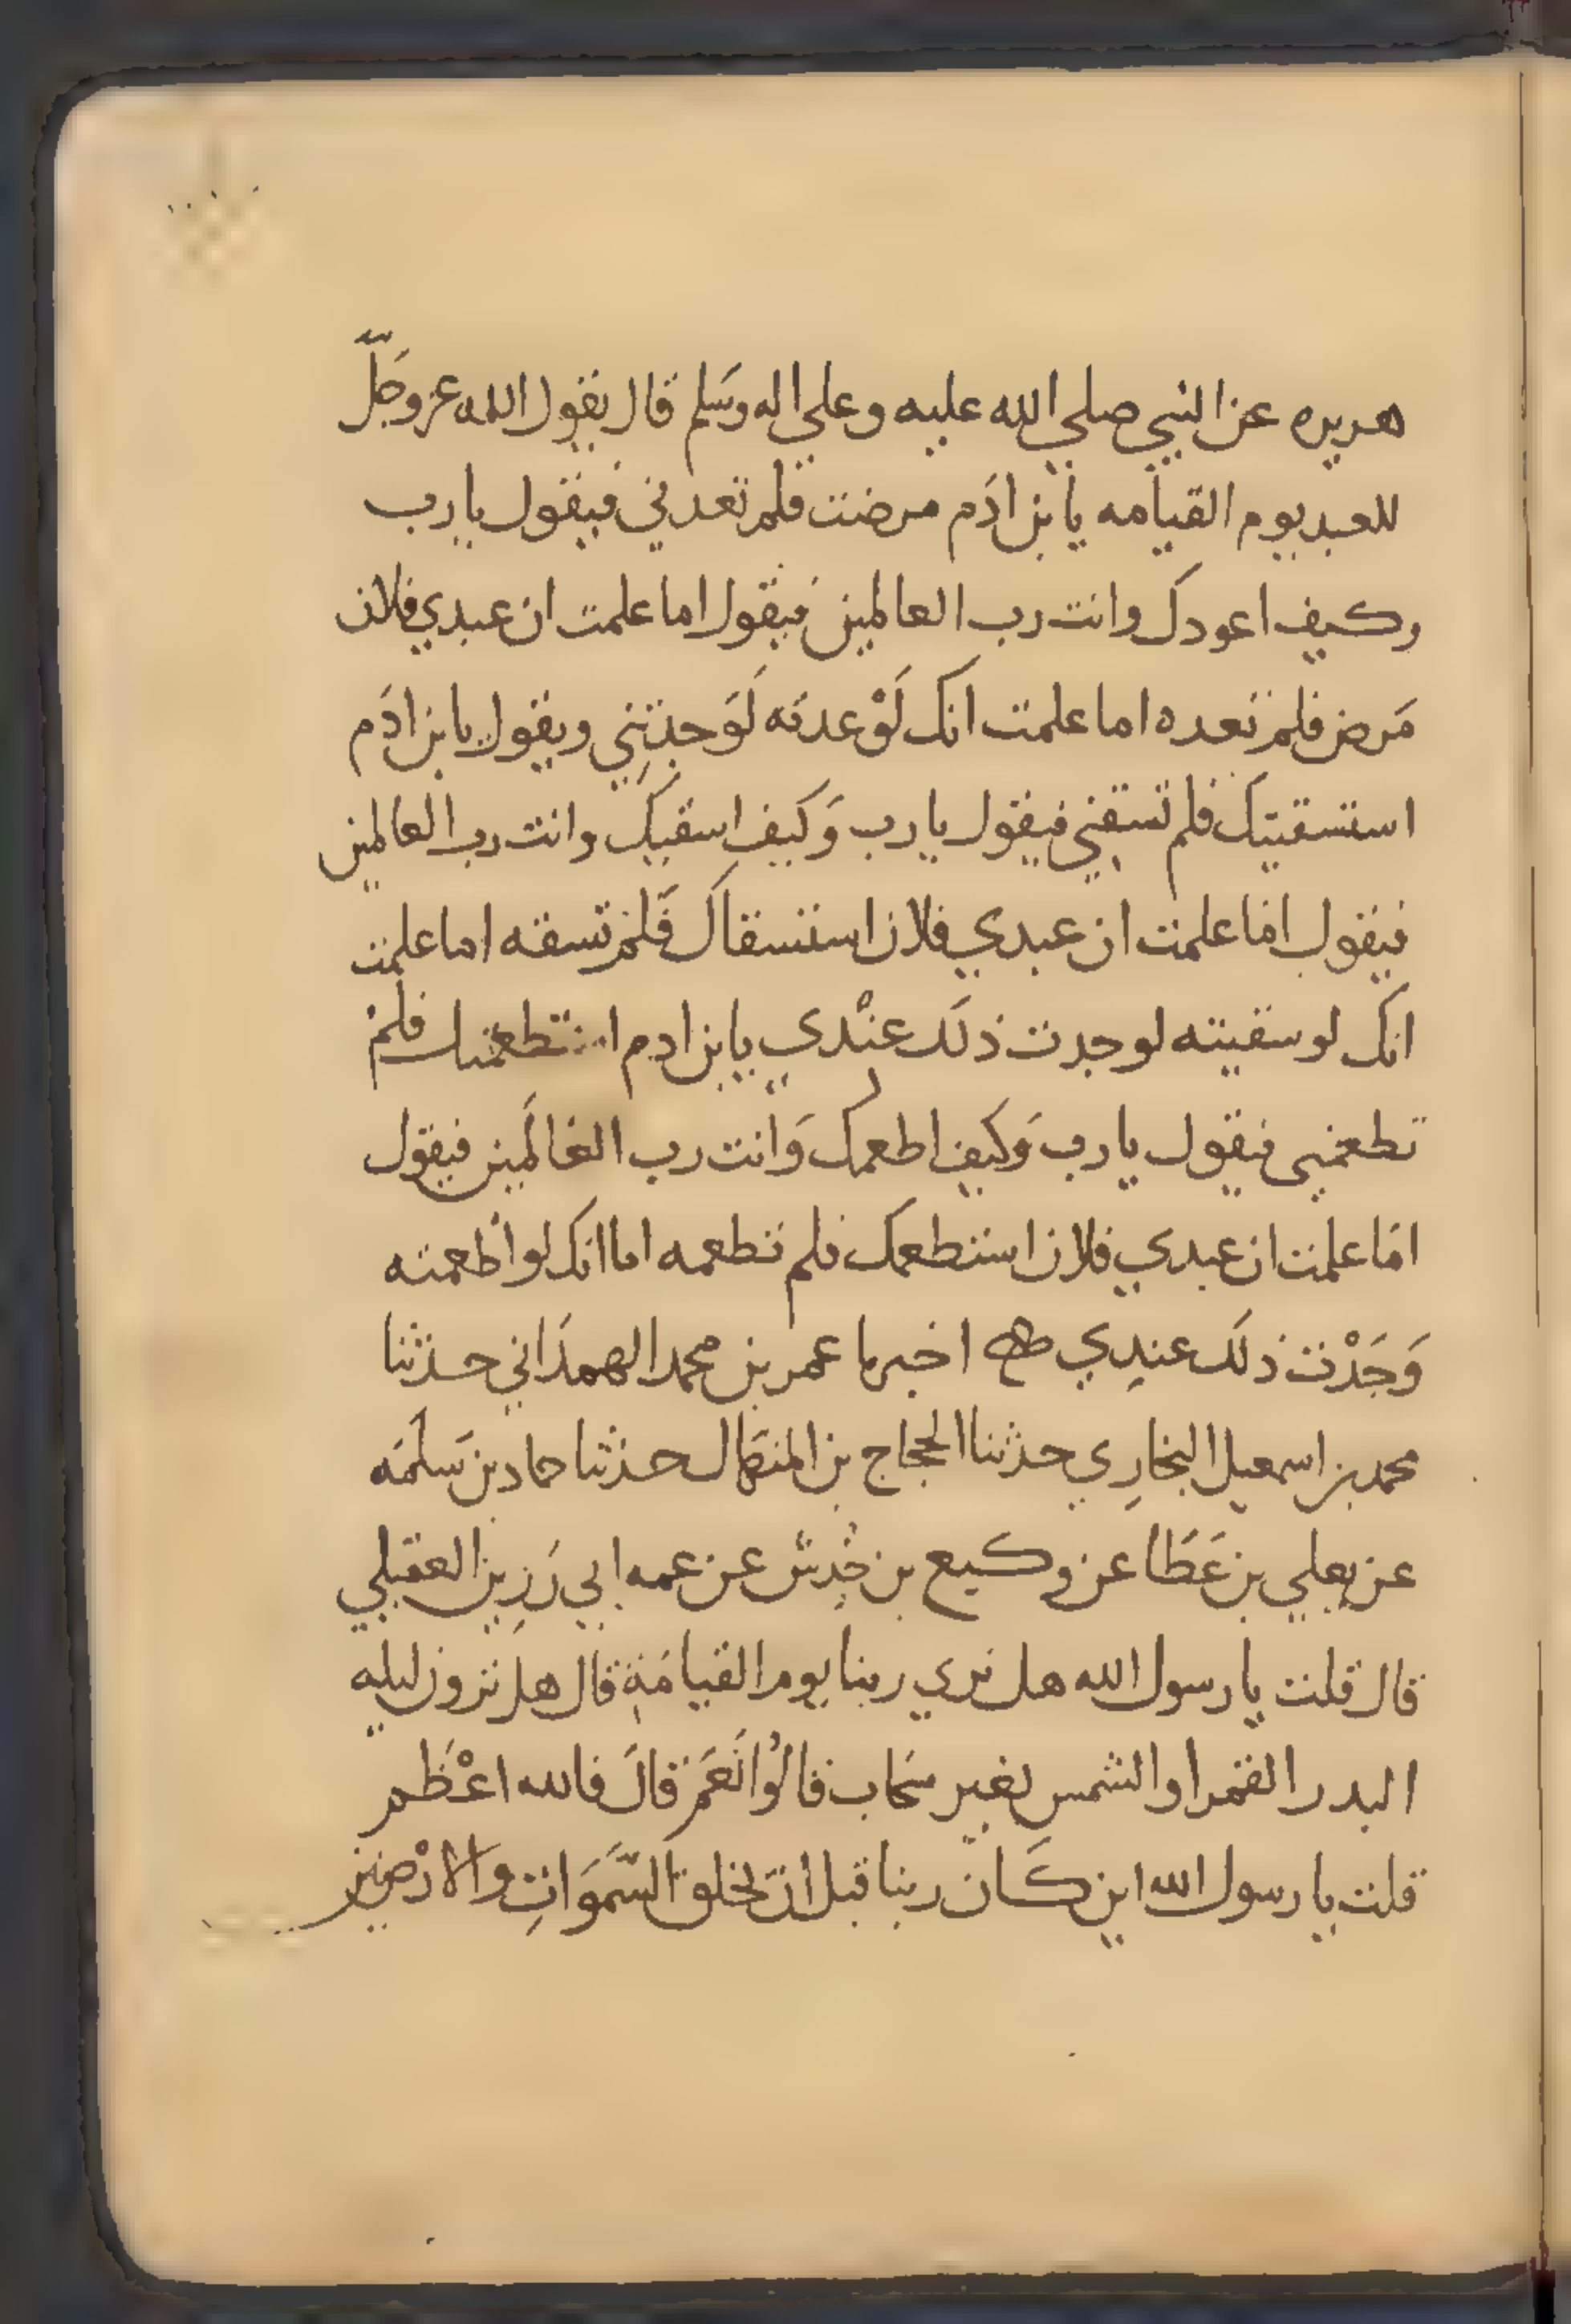 هريره عن النبي صلي الله عليه وعلي اله وسَلم قال يقول الله عز وجَلّ
للعبد يوم القيامه يا بن ادَم مرضت فلم تعدني فيقول يا رب
وكيف اعودك وانت رب العالمين فيقول اما علمت ان عبدي فلان
مَرض فلم تعده اما علمت انك لَوْ عدته لَوَجدتنِي ويقول يا بن ادَم
استسقيتك فلم تسقني فيقول يا رب وَكيف اسقيك وانت رب العالمين
فيقول اما علمت ان عبدي فلان استسقاك فَلم تسقه اما علمت
انك لو سقيته لوجدت ذلك عنْدي يا بن ادم استطعمتك فلمْ
تطعمني فيقول يا رب وَكيف اطعمك وَانت رب العالَمين فيقول
اما علمت ان عبدي فلان استطعمك فلم تطعمه اما انك لو اطعمته
وَجَدْت ذلك عندِي صح اخبرنا عمر بن محمد الهمدَاني حدثنا
محمد بن اسمعيل البخارِي حدثنا الحجاج بن المنهَال حدثنا حماد بن سَلمَه
عن يعلي بن عَطَا عن وكيع بن حُدِس عن عمه ابي رَزِين العقيلي
قال قلت يا رسول الله هل نري ربنا يوم القيامَةِ قال هل ترون ليله
البدر القمر او الشمس بغير سَحاب قالُوْا نَعَمْ قالَ فالله اعْظَم
قلت يا رسول الله اين كَان ربنا قبل ان يخلق السَّموَاتِ والارْضين